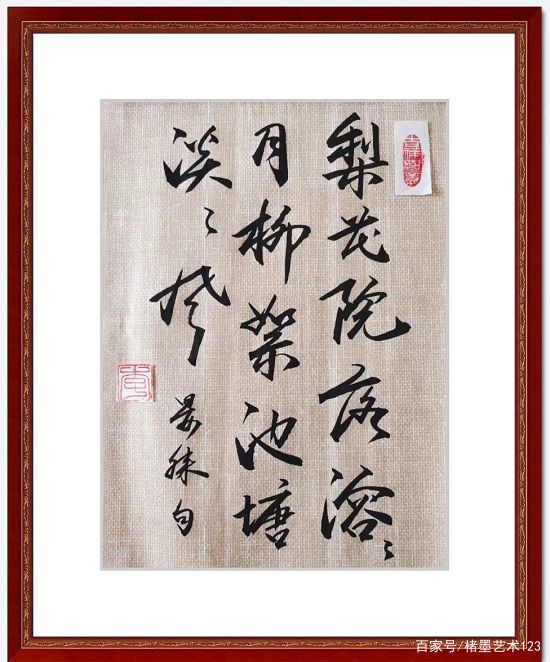 梨花院落溶〻
月柳絮池塘
淡〻风
晏殊句
百家号/楮墨艺术123